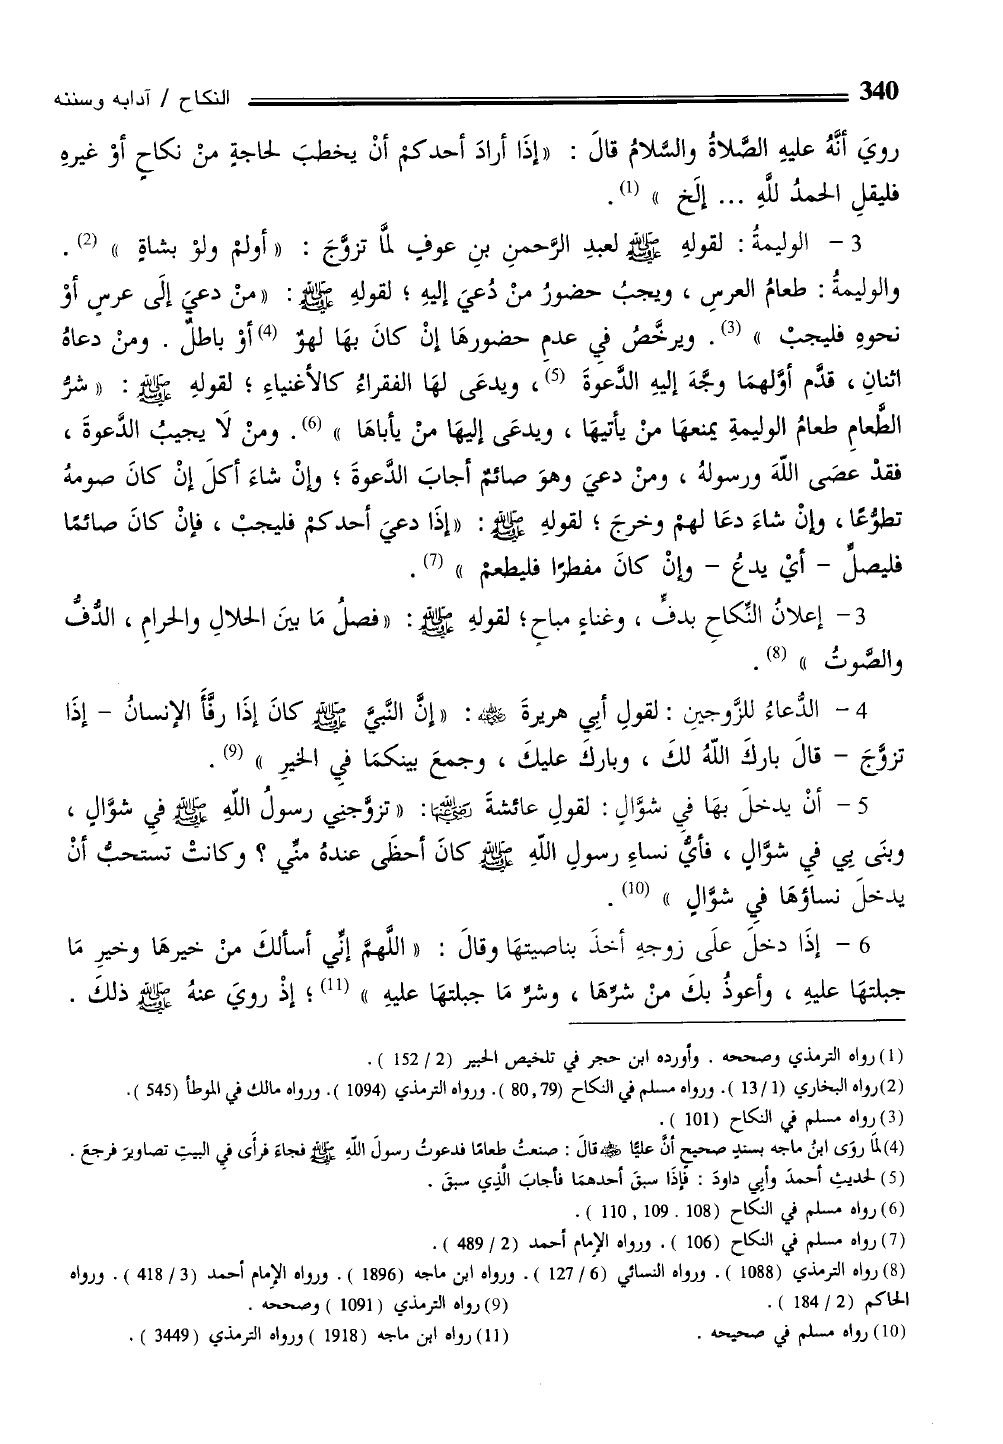 340 النكاح / آدابه وسننه
رويَ أنَّهُ عليهِ الصَّلاةُ والسَّلامُ قالَ : « إذَا أرادَ أحدكمْ أنْ يخطبَ لحاجةٍ منْ نكاحٍ أوْ غيرهِ
فليقلِ الحمدُ للَّهِ ... إلَخ » (1) .
3 - الوليمةُ : لقولهِ ﷺ لعبدِ الرَّحمنِ بنِ عوفٍ لمَّا تزوَّجَ : « أولمْ ولوْ بشاةٍ » (2) .
والوليمةُ : طعامُ العرسِ ، ويجبُ حضورُ منْ دُعيَ إليهِ ؛ لقولهِ ﷺ : « منْ دعيَ إلَى عرسٍ أوْ
نحوهِ فليجبْ » (3) . ويرخَّصُ فِي عدمِ حضورهَا إنْ كانَ بهَا لهوٌ (4) أوْ باطلٌ . ومنْ دعاهُ
اثنانِ ، قدَّم أوَّلهمَا وجَّهَ إليهِ الدَّعوةَ (5) ، ويدعَى لهَا الفقراءُ كالأغنياءِ ؛ لقولهِ ﷺ : « شرُّ
الطَّعامِ طعامُ الوليمةِ يمنعهَا منْ يأتيهَا ، ويدعَى إليهَا منْ يأباهَا » (6) . ومنْ لَا يجيبُ الدَّعوةَ ،
فقدْ عصَى اللّهَ ورسولهُ ، ومنْ دعيَ وهوَ صائمٌ أجابَ الدَّعوةَ ؛ وإنْ شاءَ أكلَ إنْ كانَ صومهُ
تطوُّعًا ، وإنْ شاءَ دعَا لهمْ وخرجَ ؛ لقولهِ ﷺ : « إذَا دعيَ أحدكمْ فليجبْ ، فإنْ كانَ صائمًا
فليصلِّ - أيْ يدعُ - وإنْ كانَ مفطرًا فليطعمْ » (7) .
3 - إعلانُ النِّكاحِ بدفٍّ ، وغناءٍ مباحٍ ؛ لقولهِ ﷺ : « فصلُ مَا بينَ الحلالِ والحرامِ ، الدُّفُّ
والصَّوتُ » (8) .
4 - الدُّعاءُ للزَّوجينِ : لقولِ أبِي هريرةَ ﵁ : « إنَّ النَّبيَّ ﷺ كانَ إذَا رفَّأَ الإنسانُ - إذَا
تزوَّجَ - قالَ باركَ اللّهُ لكَ ، وباركَ عليكَ ، وجمعَ بينكمَا فِي الخيرِ » (9) .
5 - أنْ يدخلَ بهَا فِي شوَّالٍ : لقولِ عائشةَ رضي الله عنها : « تزوَّجنِي رسولُ اللّهِ ﷺ فِي شوَّالٍ ،
وبنَى بِي فِي شوَّالٍ ، فأيُّ نساءِ رسولِ اللّهِ ﷺ كانَ أحظَى عندهُ منِّي ؟ وكانتْ تستحبُّ أنْ
يدخلَ نساؤهَا فِي شوَّالٍ » (10) .
6 - إذَا دخلَ علَى زوجهِ أخذَ بناصيتهَا وقالَ : « اللَّهمَّ إنِّي أسألكَ منْ خيرهَا وخيرِ مَا
جبلتهَا عليهِ ، وأعوذُ بكَ منْ شرِّهَا ، وشرِّ مَا جبلتهَا عليهِ » (11) ؛ إذْ رويَ عنهُ ﷺ ذلكَ .
(1) رواه الترمذي وصححه . وأورده ابن حجر في تلخيص الحبير (2 / 152 ) .
(2) رواه البخاري (1 / 13 ) . ورواه مسلم في النكاح (79 , 80 ) . ورواه الترمذي (1094 ) . ورواه مالك في الموطأ (545 ) .
(3) رواه مسلم في النكاح (101 ) .
(4) لمَا روَى ابنُ ماجه بسندٍ صحيح أنَّ عليًّا ﵁ قالَ : صنعتُ طعامًا فدعوتُ رسولَ اللّهِ ﷺ فجاءَ فرأَى فِي البيتِ تصاويرَ فرجعَ .
(5) لحديثِ أحمدَ وأبِي داودَ : فَإذَا سبقَ أحدهمَا فأجابَ الَّذِي سبقَ .
(6) رواه مسلم في النكاح (108 . 109 , 110 ) .
(7) رواه مسلم في النكاح (106 ) . ورواه الإمام أحمد (2 / 489 ) .
(8) رواه الترمذي (1088 ) . ورواه النسائي (6 / 127 ) . ورواه ابن ماجه (1896 ) . ورواه الإمام أحمد (3 / 418 ) . ورواه
الحاكم (2 / 184 ) . (9) رواه الترمذي (1091 ) وصححه .
(10) رواه مسلم في صحيحه . (11) رواه ابن ماجه (1918 ) ورواه الترمذي (3449 ) .